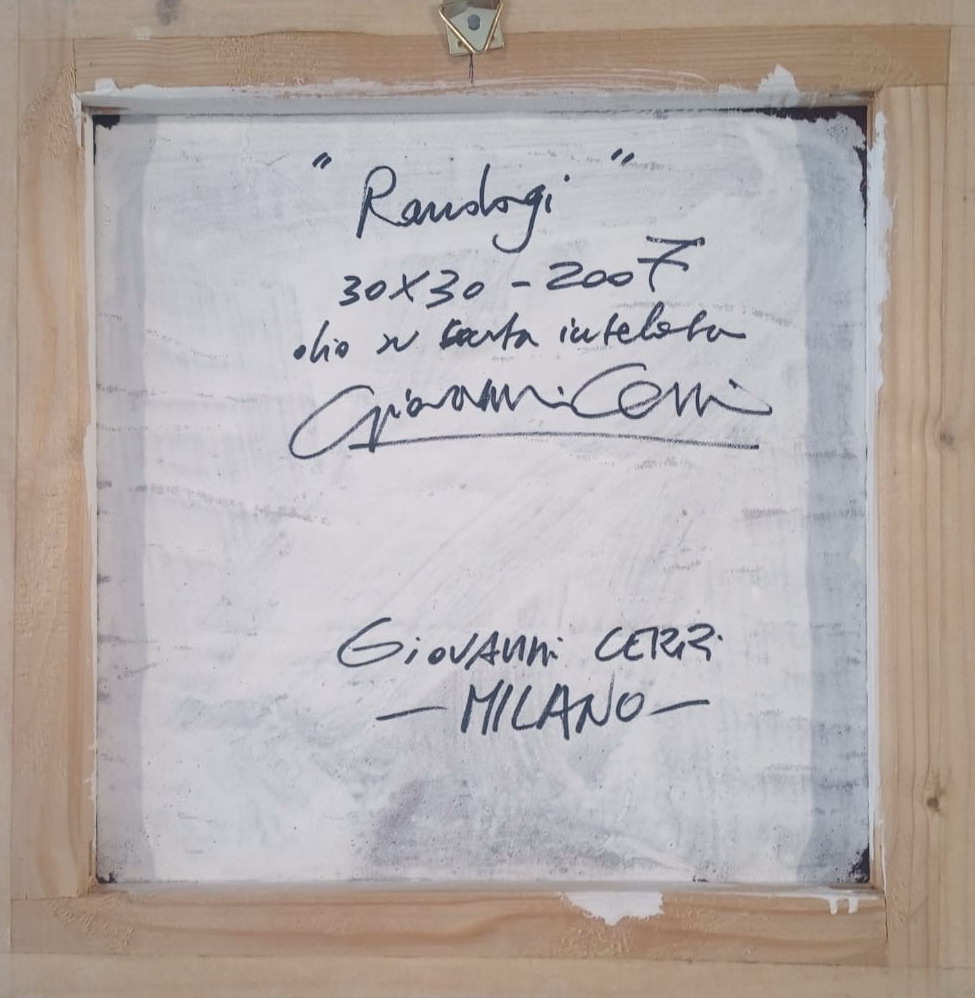 " "
30X30 - 2007
olio su carta intelata
Giovanni Cerri
GiOVANNi CERRi
— MILANO —